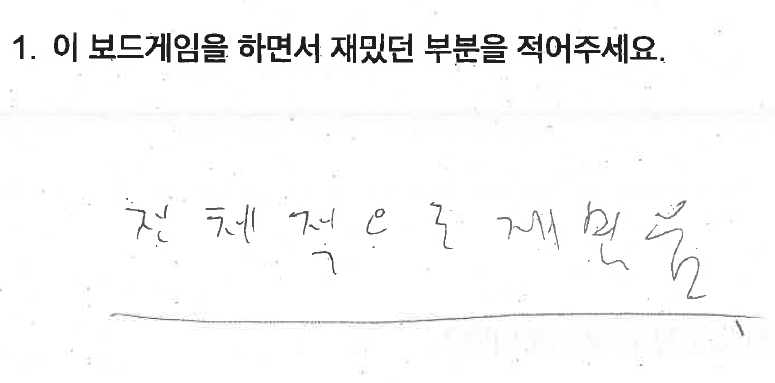 1. 이 보드게임을 하면서 재밌던 부분을 적어주세요.
전체적으로 재밌음